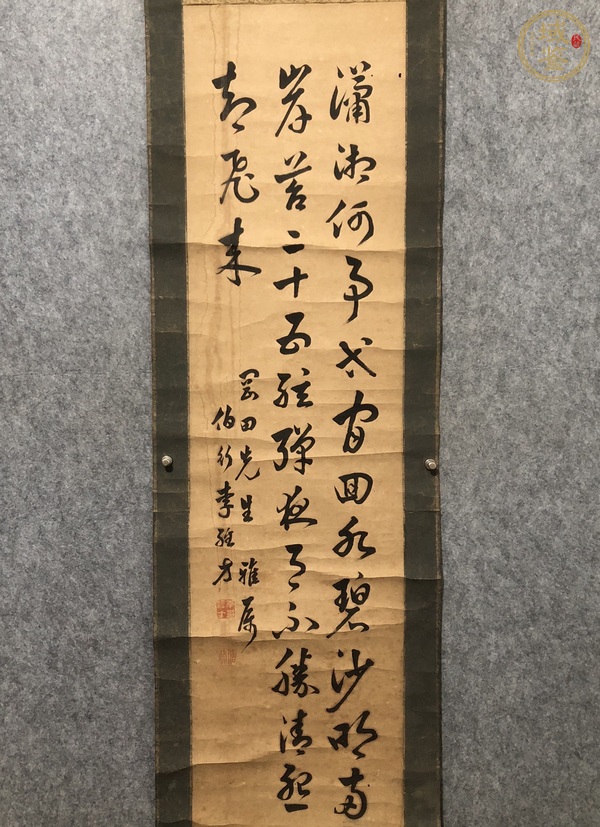 瀟湘何事等閒回水碧沙明兩
岸苔二十五絃彈夜月不勝清怨
却飛來
岡田先生雅属
伯行李經方